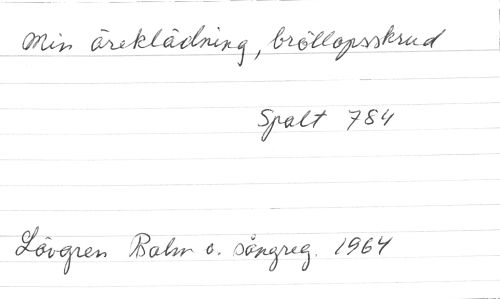 Min äreklädning, bröllopsskrud
Spalt 784
Lövgren Psalm o. sångreg. 1964